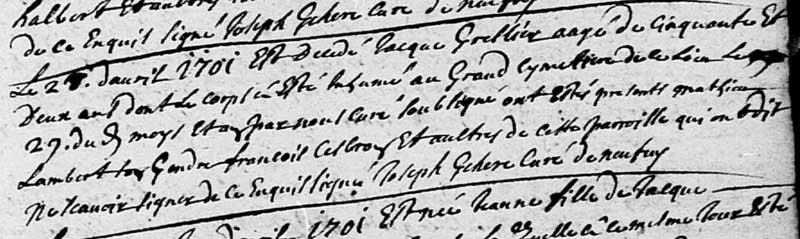 halbert et autres
de ce Enquis signé Joseph Gchere Curé de neufvy
Le 28. d'avril 1701 Est Decedé Jacque Grellier aagé de Cinquante Et
Deux ans dont Le corps a Esté Inhumé au Grand Cymettiere de ce lieu Le
29. du d moys Et an par nous Curé soubsigné ont Estés presents mathieu
Lambert son Gendre francois Et aultres de cette parroisse qui ont dit
ne scavoir signer de ce Enquis signé Joseph Gchere Curé de neufvy
1701 Est née Jeanne fille de Jacque
ce mesme Jour Esté